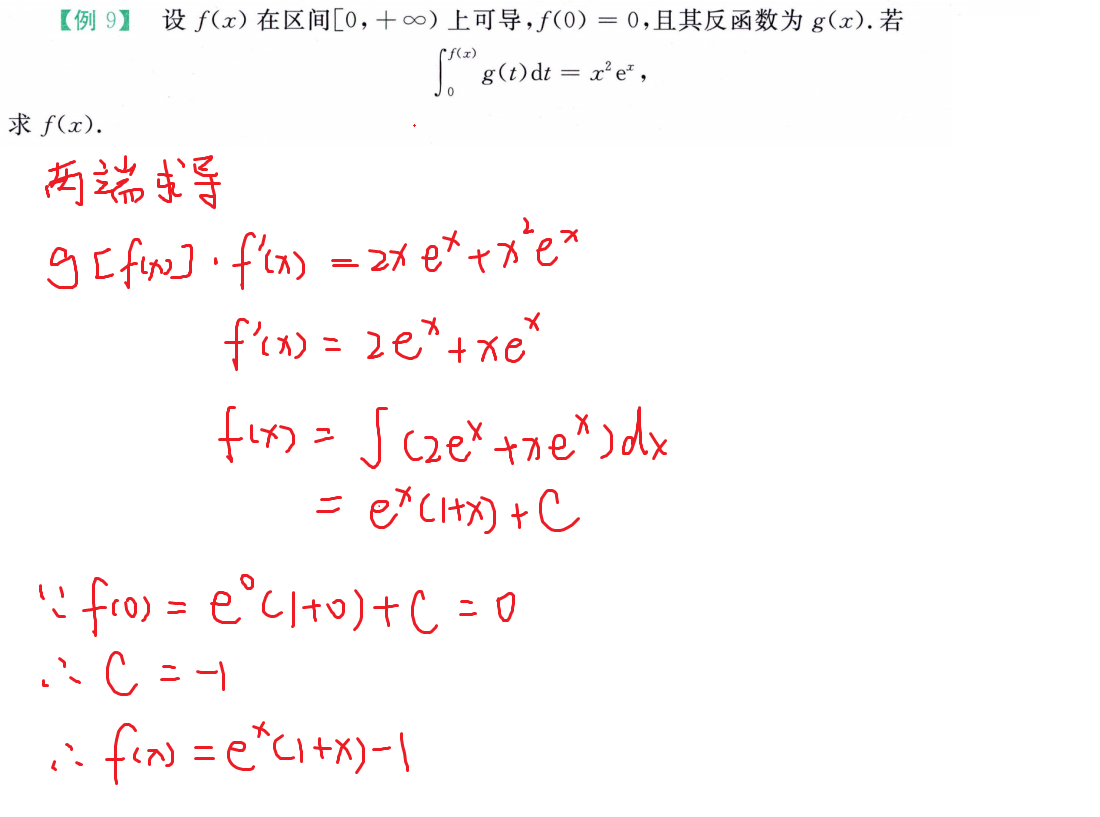 【例 9】 设 f(x) 在区间[0, +∞) 上可导, f(0) = 0, 且其反函数为 g(x). 若
∫₀^{f(x)} g(t)dt = x²eˣ,
求 f(x).
两端求导
g[f(x)]·f'(x) = 2xeˣ + x²eˣ
f'(x) = 2eˣ + xeˣ
f(x) = ∫(2eˣ + xeˣ)dx
= eˣ(1+x) + C
∵ f(0) = e⁰(1+0) + C = 0
∴ C = -1
∴ f(x) = eˣ(1+x) - 1